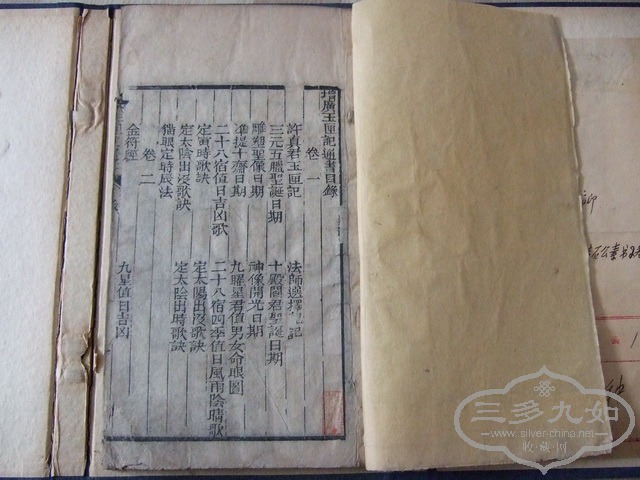 增廣玉匣記通書目錄
卷一
許真君玉匣記
法師選擇記
三元五臘聖誕日期
十殿閻君聖誕日期
雕塑聖像日期
神像開光日期
準提十齋日期
九曜星君值男女命限圖
二十八宿值日吉凶歌
二十八宿四季值日風雨陰晴歌
定寅時歌訣
定太陽出沒歌訣
定太陰出沒歌訣
定太陰出時歌訣
貓眼定時辰法
卷二
金符經
九星值日吉凶
三多九如
www.silver-china.net
收藏网